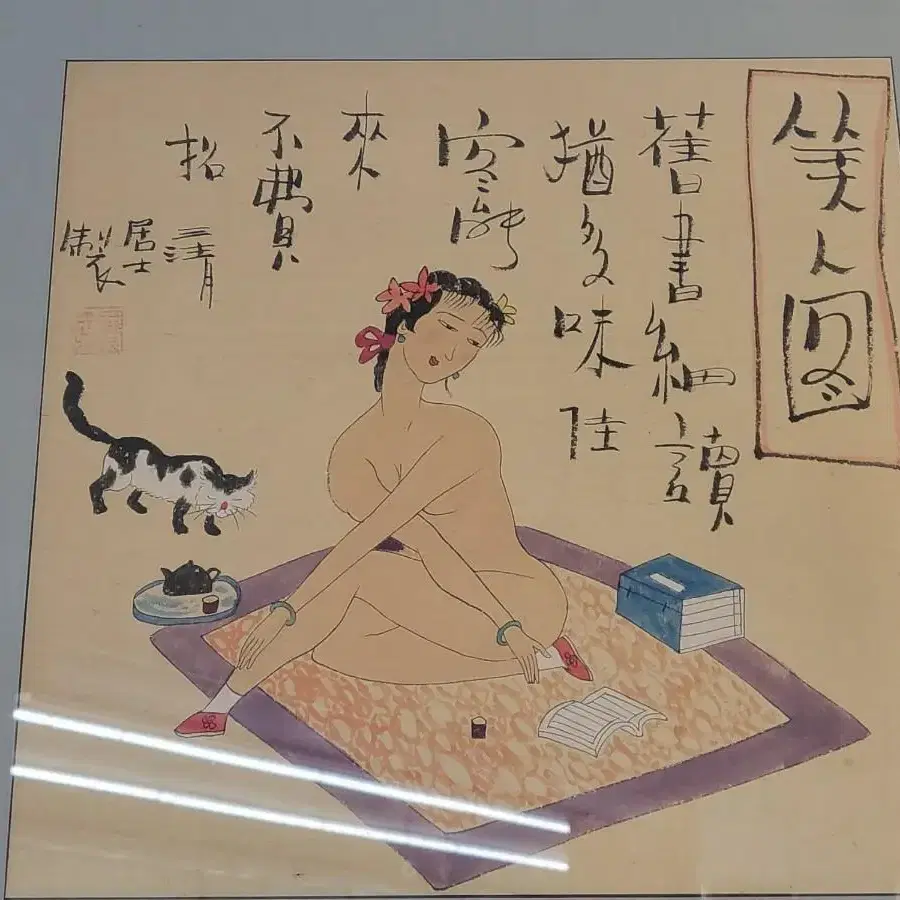 笑人图
舊書細讀
猶多味佳
客能
來
不費
招
三清
居士
製